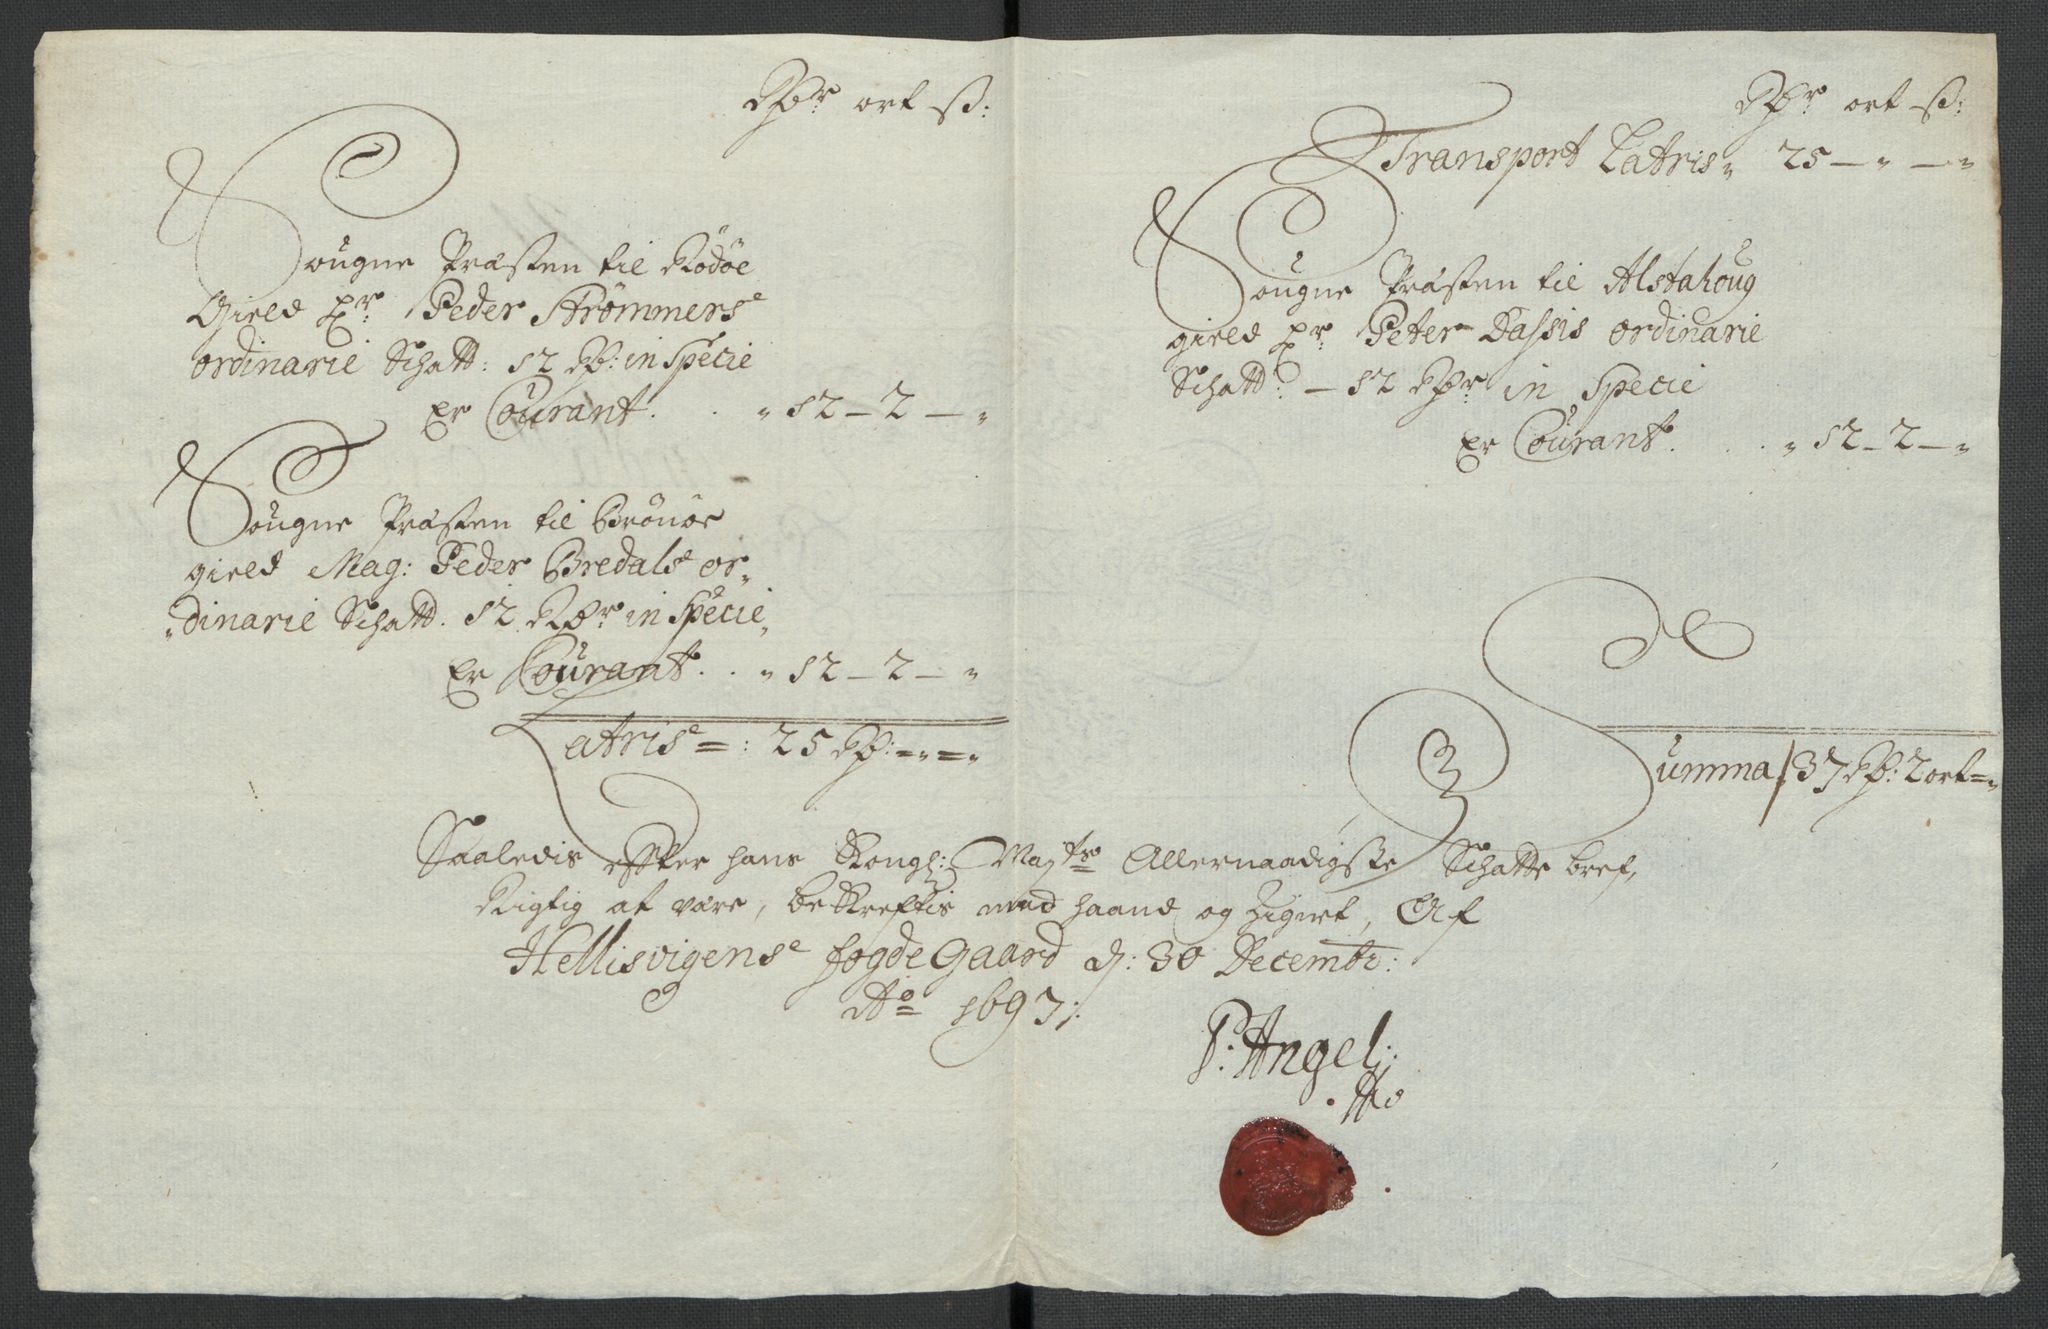 Rdr ort ß:
Sougne Præsten til Rödöe
Gield hr: Peder Strömmerse
ordinarie Schatt: 12 Rd: in Specie
er Courant . . „ 12 – 2 – „
Sougne Præsten til Brönöe
gield Mag: Peder Bredals or„
„dinarie Schatt. 12 Rdr in Specie„
er Courant . . „ 12 – 2 – „
Latris =: 25 Rd: = „ = „
Rdr ort ß:
Transport Latris„ 25 – „ – „
Sougne Præsten til Alstahoug
gield hr: Peter Dassis ordinarie
Schatt: – 12 Rdr in Specie
er Courant . . „ 12 – 2 – „
Summa / 37 Rd: 2 ort = „
Saaledis effter hans Kongl: Mayts Allernaadigste Schatte bref,
Rigtig at være, bekreftis med haand og Zignet, Af
Hellisvigens fogdegaard d: 30 Decembr:
Ao 1697:
P: Angel: